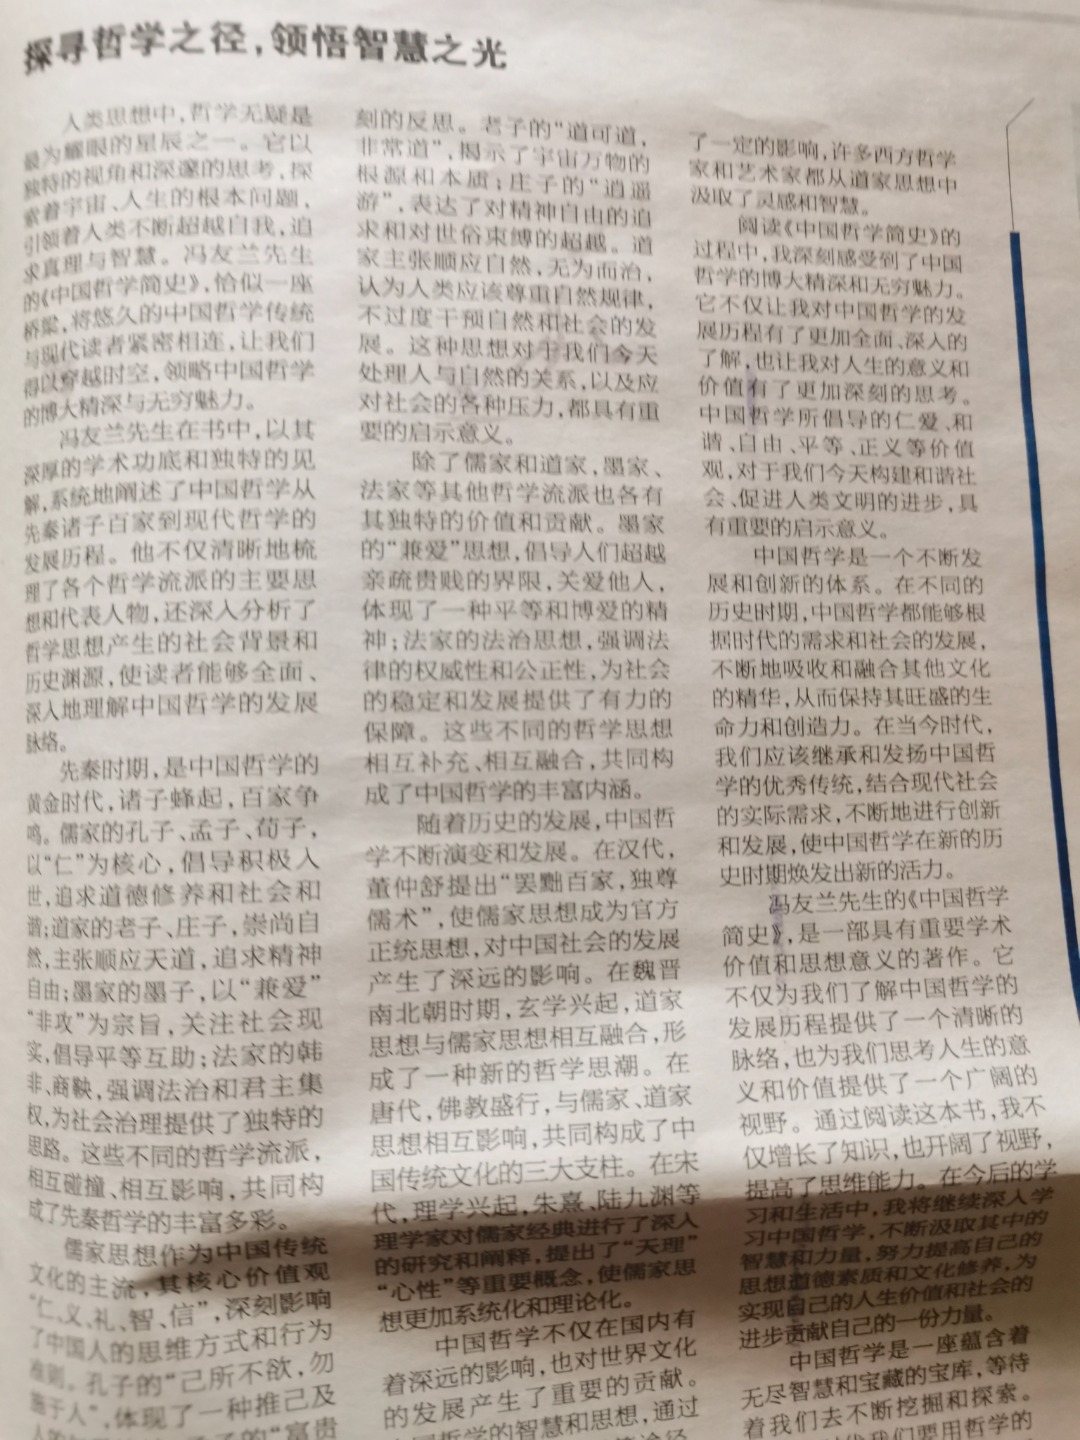 探寻哲学之径，领悟智慧之光
人类思想中，哲学无疑是
最为耀眼的星辰之一。它以
独特的视角和深邃的思考，探
索着宇宙、人生的根本问题，
引领着人类不断超越自我，追
求真理与智慧。冯友兰先生
的《中国哲学简史》，恰似一座
桥梁，将悠久的中国哲学传统
与现代读者紧密相连，让我们
得以穿越时空，领略中国哲学
的博大精深与无穷魅力。
冯友兰先生在书中，以其
深厚的学术功底和独特的见
解，系统地阐述了中国哲学从
先秦诸子百家到现代哲学的
发展历程。他不仅清晰地梳
理了各个哲学流派的主要思
想和代表人物，还深入分析了
哲学思想产生的社会背景和
历史渊源，使读者能够全面、
深入地理解中国哲学的发展
脉络。
先秦时期，是中国哲学的
黄金时代，诸子蜂起，百家争
鸣。儒家的孔子、孟子、荀子，
以“仁”为核心，倡导积极入
世，追求道德修养和社会和
谐；道家的老子、庄子，崇尚自
然，主张顺应天道，追求精神
自由；墨家的墨子，以“兼爱”
“非攻”为宗旨，关注社会现
实，倡导平等互助；法家的韩
非、商鞅，强调法治和君主集
权，为社会治理提供了独特的
思路。这些不同的哲学流派，
相互碰撞、相互影响，共同构
成了先秦哲学的丰富多彩。
儒家思想作为中国传统
文化的主流，其核心价值观
“仁、义、礼、智、信”，深刻影响
了中国人的思维方式和行为
准则。孔子的“己所不欲，勿
施于人”，体现了一种推己及
子的“富贵
刻的反思。老子的“道可道，
非常道”，揭示了宇宙万物的
根源和本质；庄子的“逍遥
游”，表达了对精神自由的追
求和对世俗束缚的超越。道
家主张顺应自然，无为而治，
认为人类应该尊重自然规律，
不过度干预自然和社会的发
展。这种思想对于我们今天
处理人与自然的关系，以及应
对社会的各种压力，都具有重
要的启示意义。
除了儒家和道家，墨家、
法家等其他哲学流派也各有
其独特的价值和贡献。墨家
的“兼爱”思想，倡导人们超越
亲疏贵贱的界限，关爱他人，
体现了一种平等和博爱的精
神；法家的法治思想，强调法
律的权威性和公正性，为社会
的稳定和发展提供了有力的
保障。这些不同的哲学思想
相互补充、相互融合，共同构
成了中国哲学的丰富内涵。
随着历史的发展，中国哲
学不断演变和发展。在汉代，
董仲舒提出“罢黜百家，独尊
儒术”，使儒家思想成为官方
正统思想，对中国社会的发展
产生了深远的影响。在魏晋
南北朝时期，玄学兴起，道家
思想与儒家思想相互融合，形
成了一种新的哲学思潮。在
唐代，佛教盛行，与儒家、道家
思想相互影响，共同构成了中
国传统文化的三大支柱。在宋
代，理学兴起，朱熹、陆九渊等
理学家对儒家经典进行了深入
的研究和阐释，提出了“天理”
“心性”等重要概念，使儒家思
想更加系统化和理论化。
中国哲学不仅在国内有
着深远的影响，也对世界文化
的发展产生了重要的贡献。
哲学的智慧和思想，通过
了一定的影响，许多西方哲学
家和艺术家都从道家思想中
汲取了灵感和智慧。
阅读《中国哲学简史》的
过程中，我深刻感受到了中国
哲学的博大精深和无穷魅力。
它不仅让我对中国哲学的发
展历程有了更加全面、深入的
了解，也让我对人生的意义和
价值有了更加深刻的思考。
中国哲学所倡导的仁爱、和
谐、自由、平等、正义等价值
观，对于我们今天构建和谐社
会、促进人类文明的进步，具
有重要的启示意义。
中国哲学是一个不断发
展和创新的体系。在不同的
历史时期，中国哲学都能够根
据时代的需求和社会的发展，
不断地吸收和融合其他文化
的精华，从而保持其旺盛的生
命力和创造力。在当今时代，
我们应该继承和发扬中国哲
学的优秀传统，结合现代社会
的实际需求，不断地进行创新
和发展，使中国哲学在新的历
史时期焕发出新的活力。
冯友兰先生的《中国哲学
简史》，是一部具有重要学术
价值和思想意义的著作。它
不仅为我们了解中国哲学的
发展历程提供了一个清晰的
脉络，也为我们思考人生的意
义和价值提供了一个广阔的
视野。通过阅读这本书，我不
仅增长了知识，也开阔了视野，
提高了思维能力。在今后的学
习和生活中，我将继续深入学
习中国哲学，不断汲取其中的
智慧和力量，努力提高自己的
思想道德素质和文化修养，为
实现自己的人生价值和社会的
进步贡献自己的一份力量。
中国哲学是一座蕴含着
无尽智慧和宝藏的宝库，等待
着我们去不断挖掘和探索。
我们要用哲学的